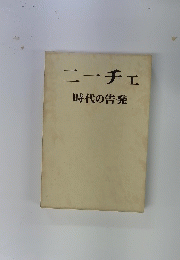 ニーチェ
時代の告発